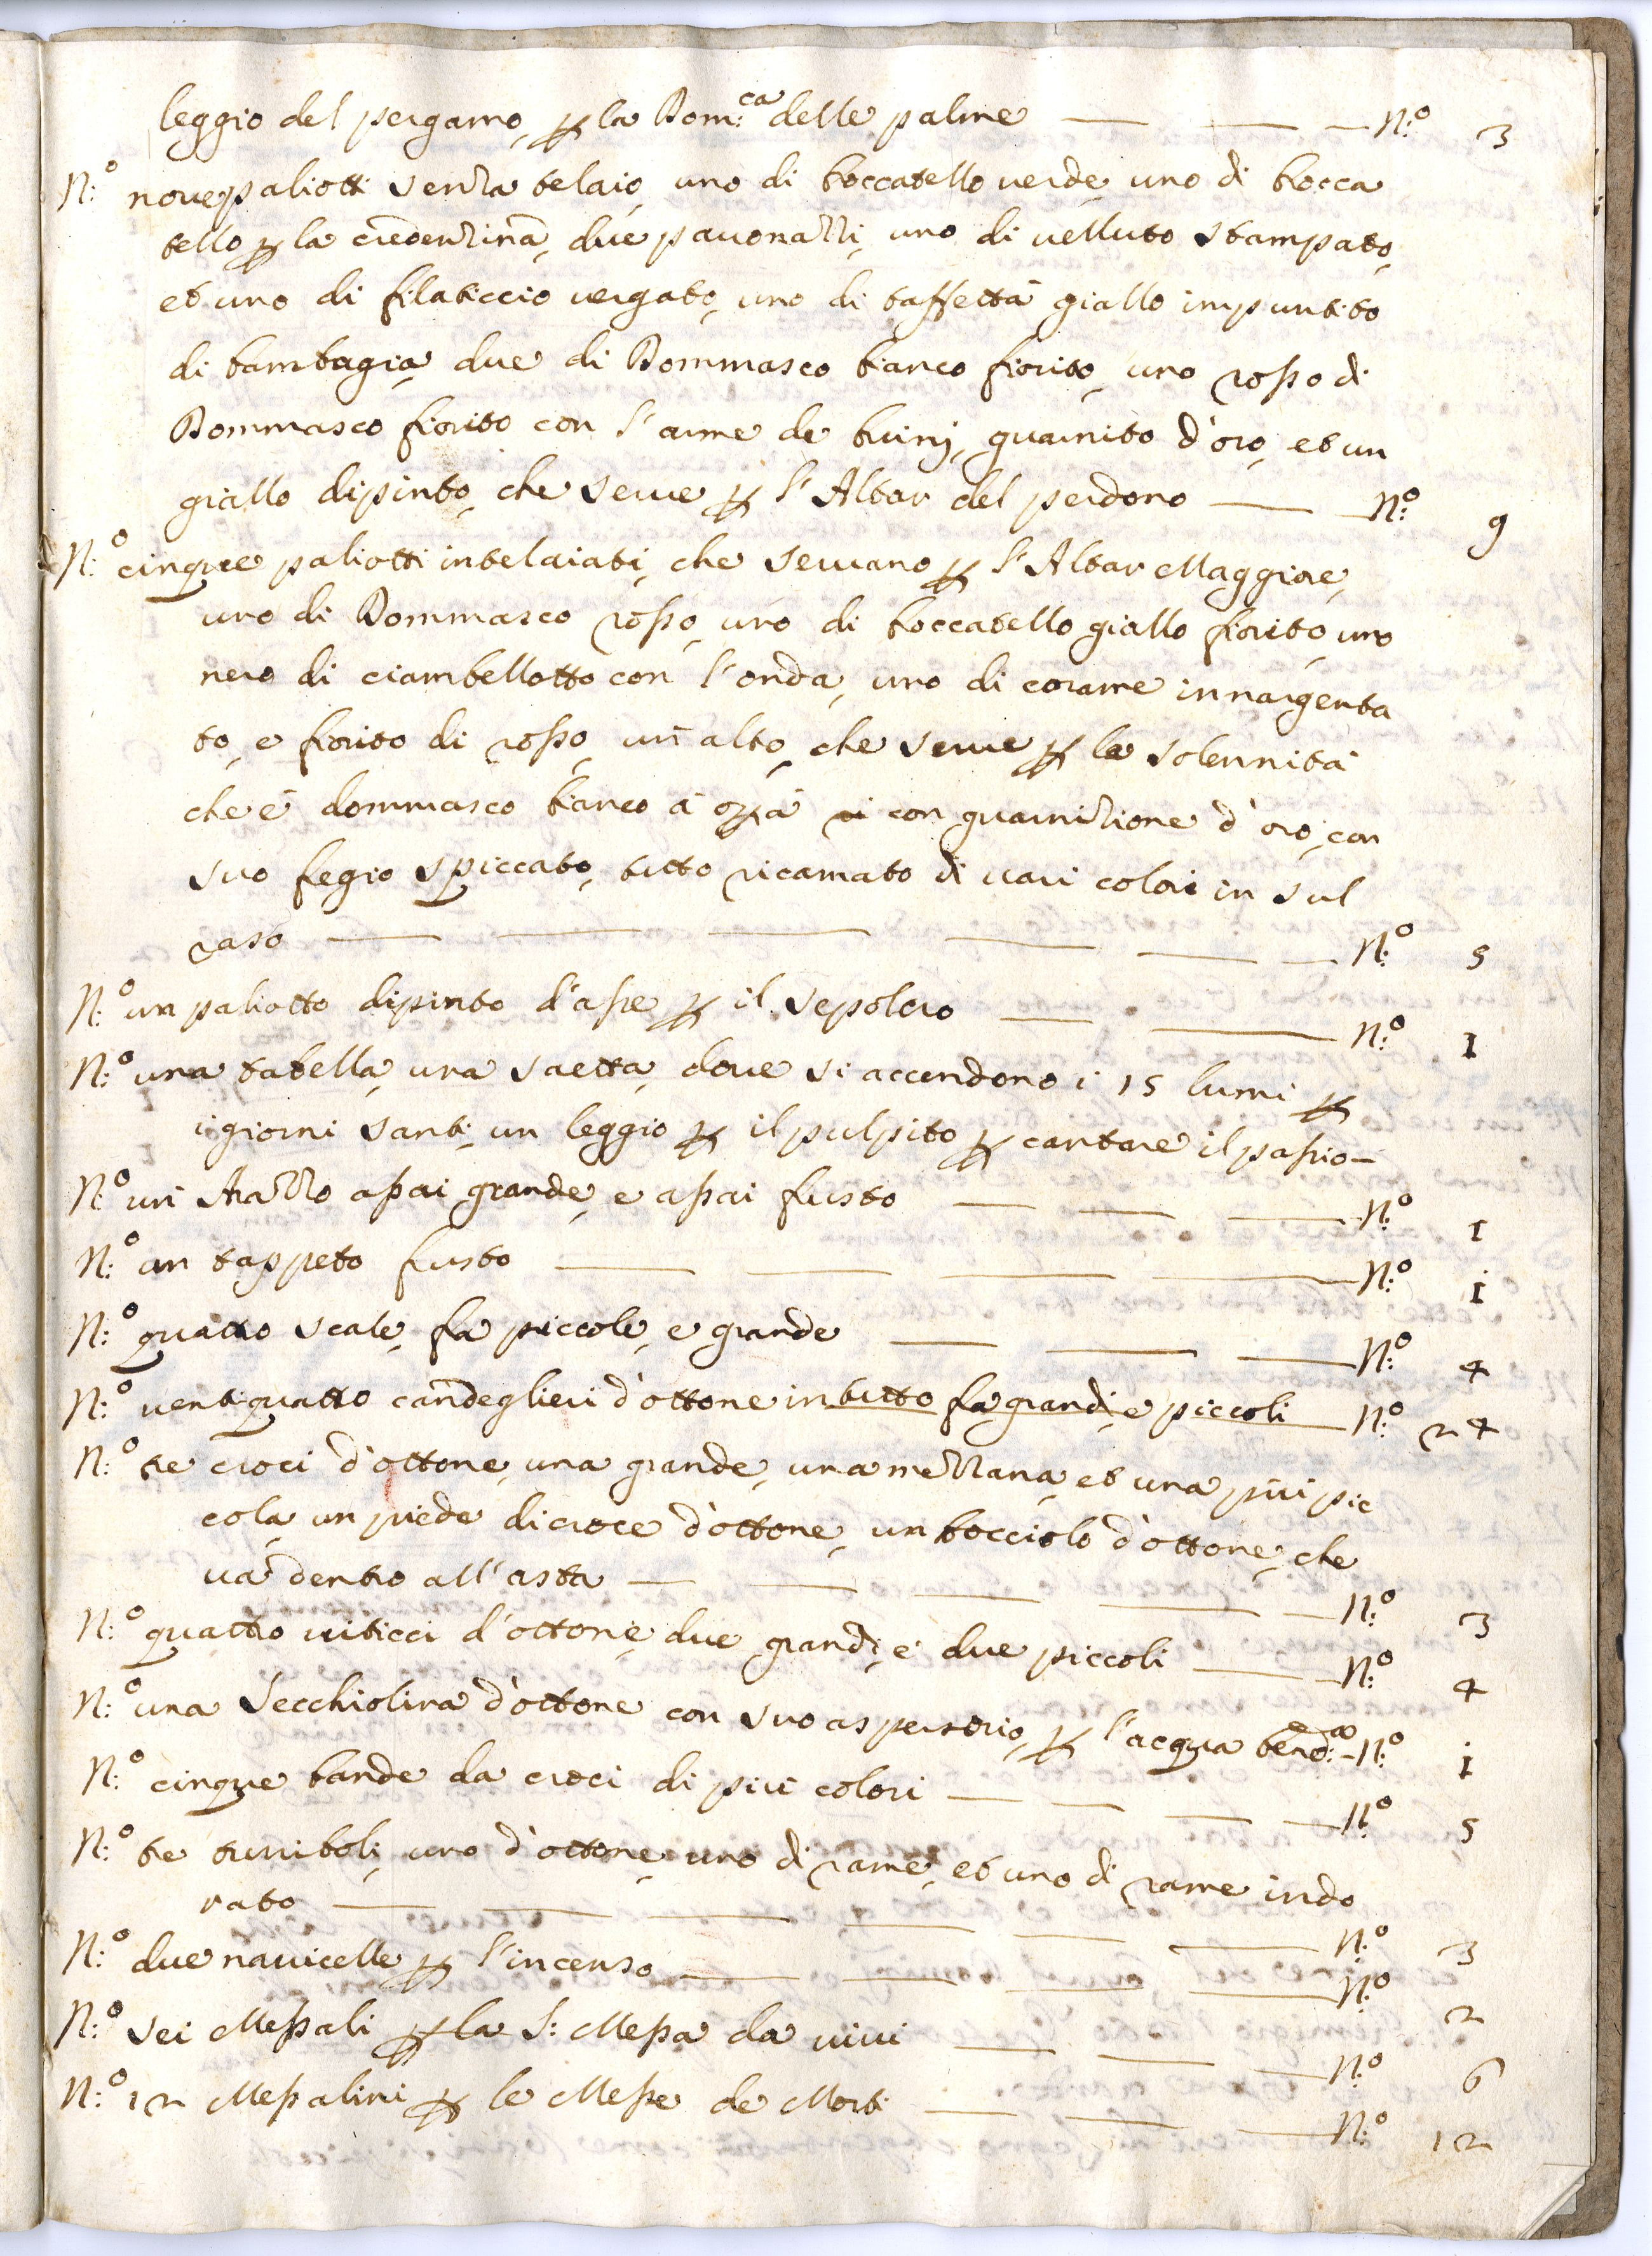 leggio del pergamo, p la Dom:ca delle palme — — — N:o 3
N:o nove paliotti senza telaio, uno di broccatello uerde, uno di brocca
tello p la credenzina, due pauonazzi, uno di uelluto stampato,
et uno di filaticcio uergato, uno di taffettà giallo impuntito
di bambagia, due di Dommasco bianco fiorito, uno rosso di
Dommasco fiorito con l'arme de buinj, guarnito d'oro, et un
giallo dipinto, che serue p l'Altar del perdono — N:o 9
N:o cinque paliotti intelaiati, che seruano p l'Altar Maggiore,
uno di Dommasco rosso, uno di broccatello giallo fiorito, uno
nero di ciambellotto con l'onda, uno di corame innargenta
to, e fiorito di rosso, un alto, che serue p le solennità
che è dommasco bianco à con guarnizione d'oro, con
suo fregio spiccato, tutto ricamato di uari colori in sul
raso — — — — — — N:o 5
N:o un paliotto dipinto d'asse p il sepolcro — — N:o 1
N:o una tabella, una saetta, doue si accendono i 15 lumi p
i giorni santi, un leggio p il pulpito p cantare il passio —
N:o un Arazzo assai grande, e assai frusto — — — N:o 1
N:o un tappeto frusto — — — — N:o 1
N:o quattro scale, fra piccole, e grande — — — N:o 4
N:o uentiquattro candeglieri d'ottone in tutto fra grandi, e piccoli N:o 24
N:o tre croci d'ottone, una grande, una mezzana, et una più pic
cola, un piede di croce d'ottone, un bocciolo d'ottone, che
uà dentro all'asta — — — — — N:o 3
N:o quattro uiticci d'ottone, due grandi, e due piccoli — N:o 4
N:o una Secchiolina d'ottone con suo aspersorio, p l'acqua bened:a — N:o 1
N:o cinque bande da croci di più colori — — — — N:o 5
N:o tre turriboli, uno d'ottone, uno di rame, et uno di rame indo
rato — — — — — — N:o 3
N:o due nauicelle p l'incenso — — — — N:o 2
N:o sei Messali p la S: Messa da uiui — — — N:o 6
N:o 12 Messalini p le Messe de Morti — — — N:o 12